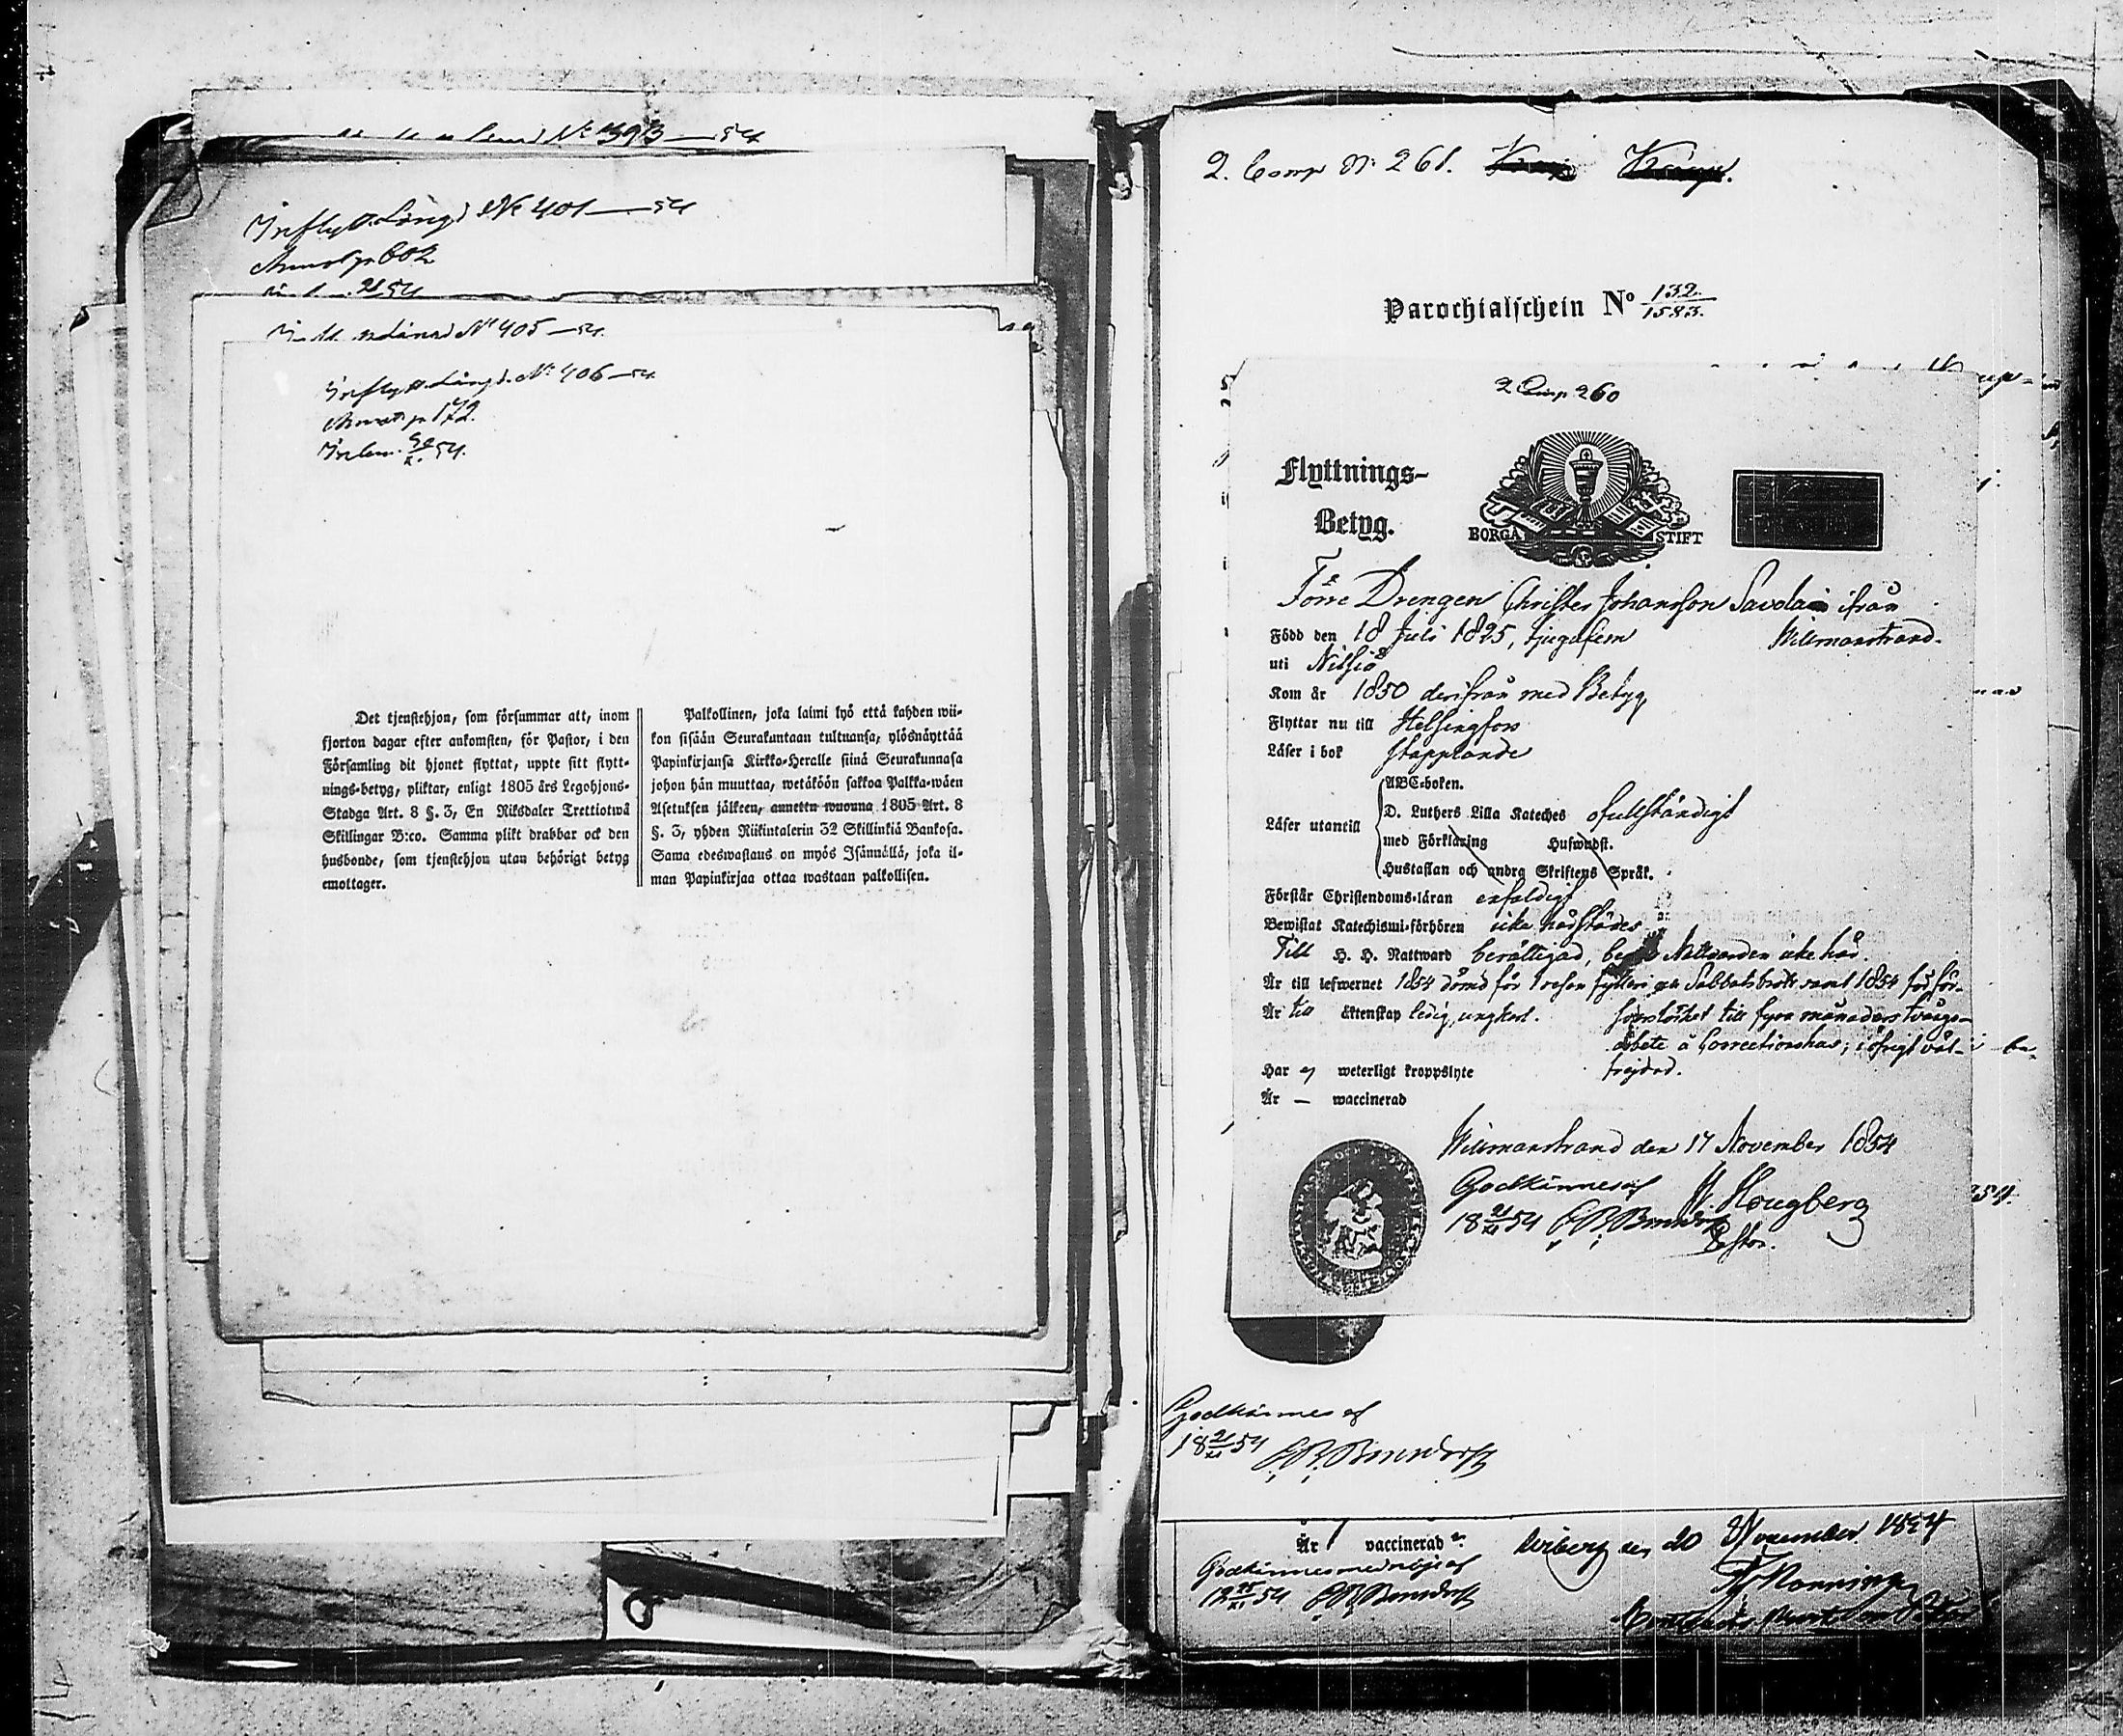 Inflytt. Längd № 401—54
Annot p 602
Inflytt. Längd № 405—54.
Inflytt. Längd. № 406—54.
Annot p 172.
Det tjenstehjon, som försummar att, inom
fjorton dagar efter ankomsten, för Pastor, i den
Församling dit hjonet flyttat, uppte sitt flytt-
nings-betyg, pliktar, enligt 1805 års Legohjons-
Stadga Art. 8 §. 3, En Riksdaler Trettiotwå
Skillingar B:co. Samma plikt drabbar ock den
husbonde, som tjenstehjon utan behörigt betyg
emottager.
Palkollinen, joka laimi lyö että kahden wii-
kon sisään Seurakuntaan tultuansa, ylösnäyttää
Papinkirjansa Kirkko-Heralle siinä Seurakunnasa
johon hän muuttaa, wetäköön sakkoa Palkka-wäen
Asetuksen jälkeen, annettu wuonna 1805 Art. 8
§. 3, yhden Riikintalerin 32 Skillinkiä Bankosa.
Sama edeswastaus on myös Isännällä, joka il-
man Papinkirjaa ottaa wastaan palkollisen.
2. Comp № 261.
Parochialschein No 132/1583.
2 Comp 260
Flyttnings-
Betyg.
BORGÅ STIFT
Förre Drengen Christer Johansson Savolain ifrån
Född den 18 Juli 1825, tjugufem Willmanstrand.
uti Nilsiö
Kom år 1850 derifrån med Betyg
Flyttar nu till Helsingfors
Läser i bok stapplande
ABC-boken.
Läser utantill D. Luthers Lilla Kateches ofullständigt
med Förklaring Hufwudst.
Hustaflan och andra Skriftens Språk.
Förstår Christendoms-läran enfaldigt
Bewistat Katechismi-förhören icke härstädes
Till H. H. Nattward berättigad, Nattvarden icke här.
Är till lefwernet 1854 dömd för 1 resan fylleri och Sabbatsbrott samt 1854 för för-
Är till äktenskap ledig, ungkarl. svarslöshet till fyra månaders tvångs-
arbete å Correctionshus; i öfrigt väl-
Har ej weterligt kroppslyte frejdad.
Är — waccinerad
Willmanstrand den 17 November 1854
Godkännes af
18 21/XI 54
Godkännes af
18 21/XI 54
Är vaccinerad
den 20 November 1854